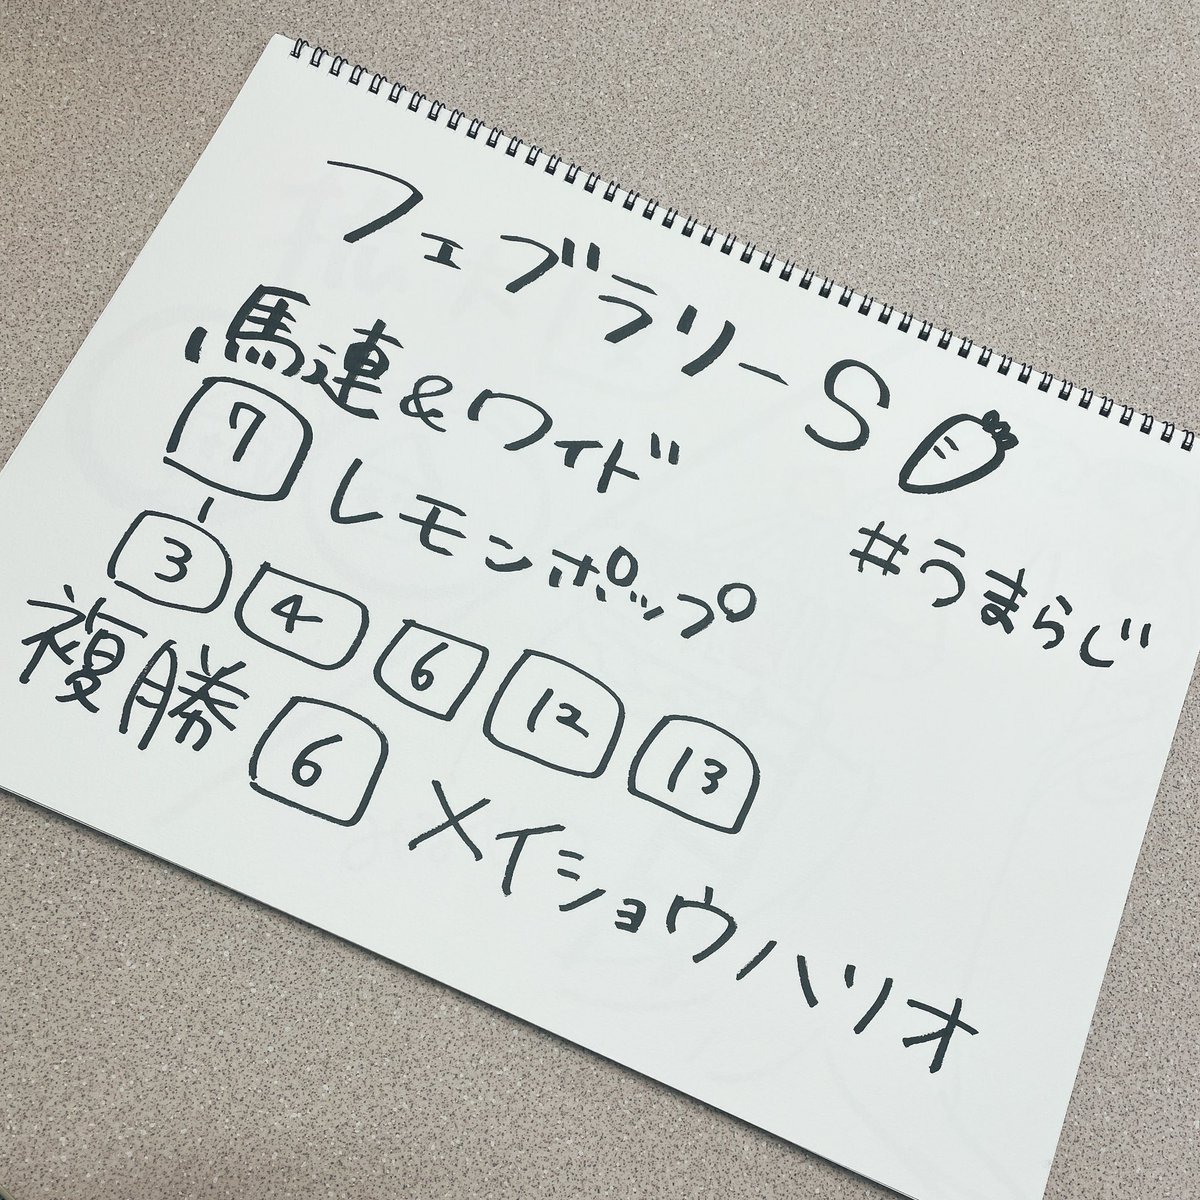 フェブラリーS
#うまらじ
馬連&ワイド
7 レモンポップ
3 4 6 12 13
複勝 6 メイショウハリオ